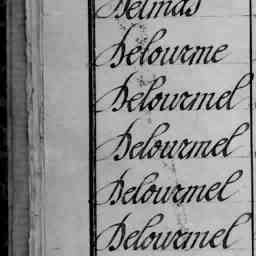 Delmas
Delourme
Delourmel
Delourmel
Delourmel
Delourmel